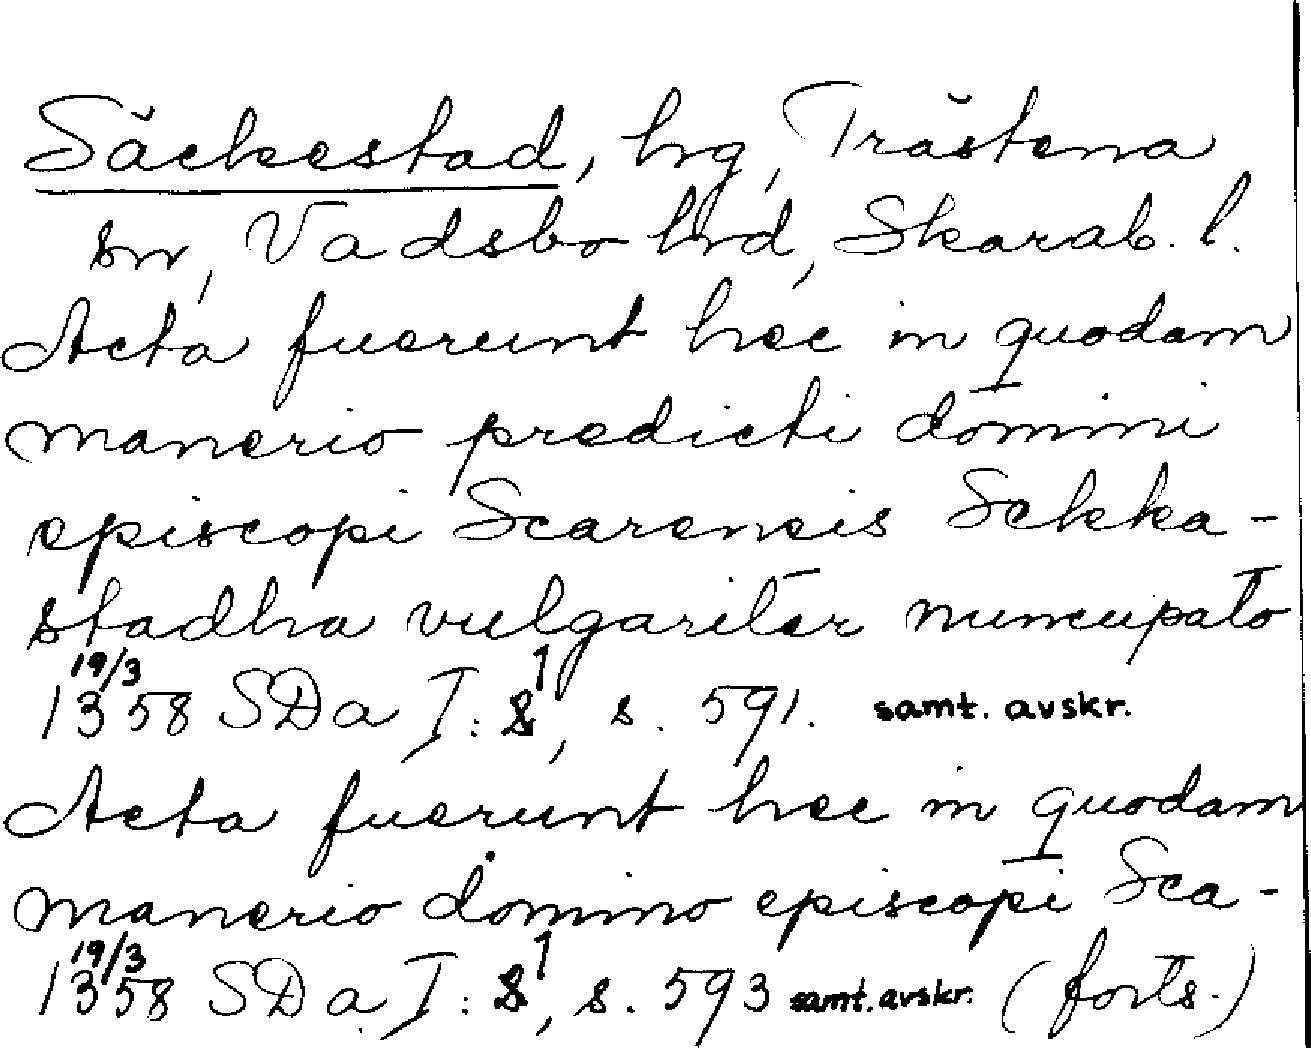 Säckestad, hg, Trästena
sn, Vadsbo hrd, Skarab. l.
Acta fuerunt hec in quodam
manerio predicti domini
episcopi Scarensis Sekka-
stadha vulgariter nuncupato
19/3 1358 SDa I: 1, s. 591. samt. avskr.
Acta fuerunt hec in quodam
manerio domino episcopi Sca-
19/3 1358 SDa I: 1, s. 593 samt. avskr. (forts.)